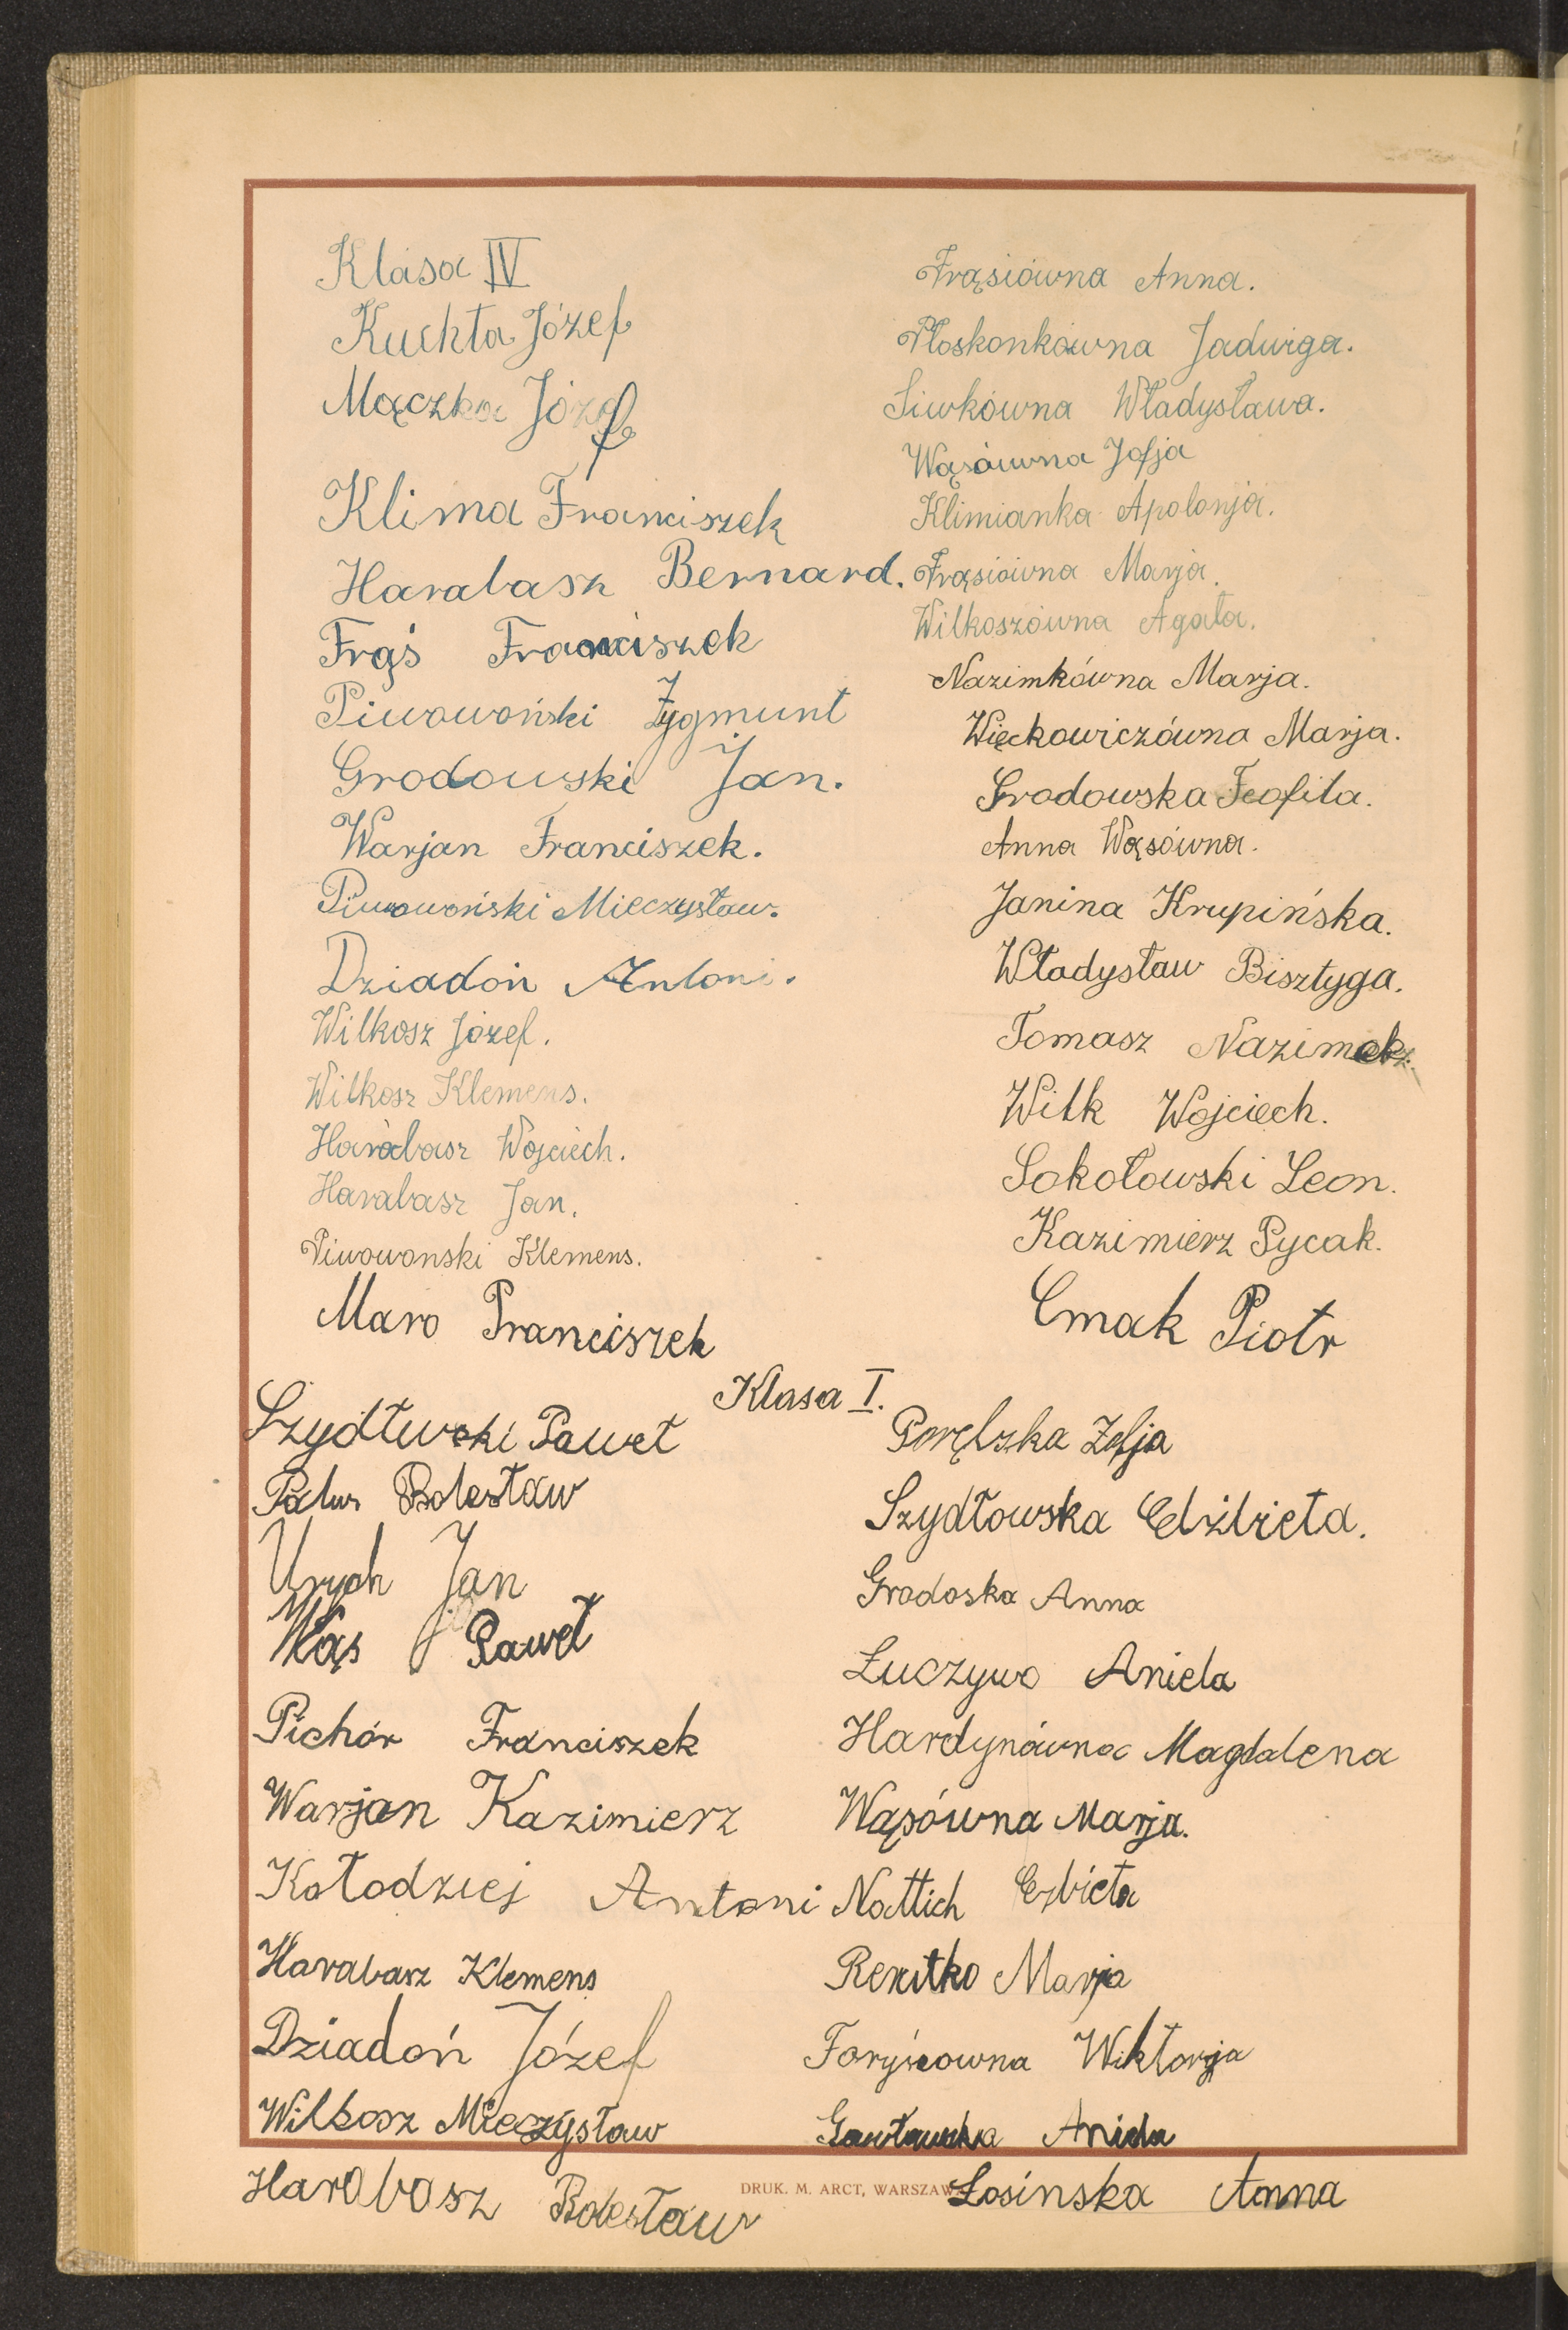 Klasa IV
Kuchta Józef
Mączka Józef
Klima Franciszek
Harabasz Bernard.
Frąś Franciszek
Piwowoński Zygmunt
Grodowski Jan.
Warjan Franciszek.
Piwowoński Mieczysław.
Dziadoń Antoni.
Wilkosz Józef.
Wilkosz Klemens.
Harabasz Wojciech.
Harabasz Jan.
Piwowonski Klemens.
Maro Franciszek
Frąsiówna Anna.
Płoskonkówna Jadwiga.
Siwkówna Władysława.
Wąsówna Zofja
Klimianka Apolonja.
Frąsiówna Marja.
Wilkoszówna Agata.
Nazimkówna Marja.
Więckowiczówna Marja.
Grodowska Teofila.
Anna Wąsówna.
Janina Krupińska.
Władysław Bisztyga.
Tomasz Nazimek.
Wilk Wojciech.
Sokołowski Leon.
Kazimierz Pycak.
Cmak Piotr
Klasa I.
Szydłwski Paweł
Palus Bolesław
Urych Jan
Wąs Paweł
Pichór Franciszek
Warjan Kazimierz
Kołodziej Antoni
Harabasz Klemens
Dziadoń Józef
Wilkosz Mieczysław
Harabasz Bolesław
Zofja
Szydłowska Elżbieta.
Grodoska Anna
Łuczywo Aniela
Hardynówna Magdalena
Wąsówna Marja.
Nattich Elzbieta
Marja
Foryśiowna Wiktorja
Aniela
Łosinska Anna
DRUK. M. ARCT, WARSZAWA